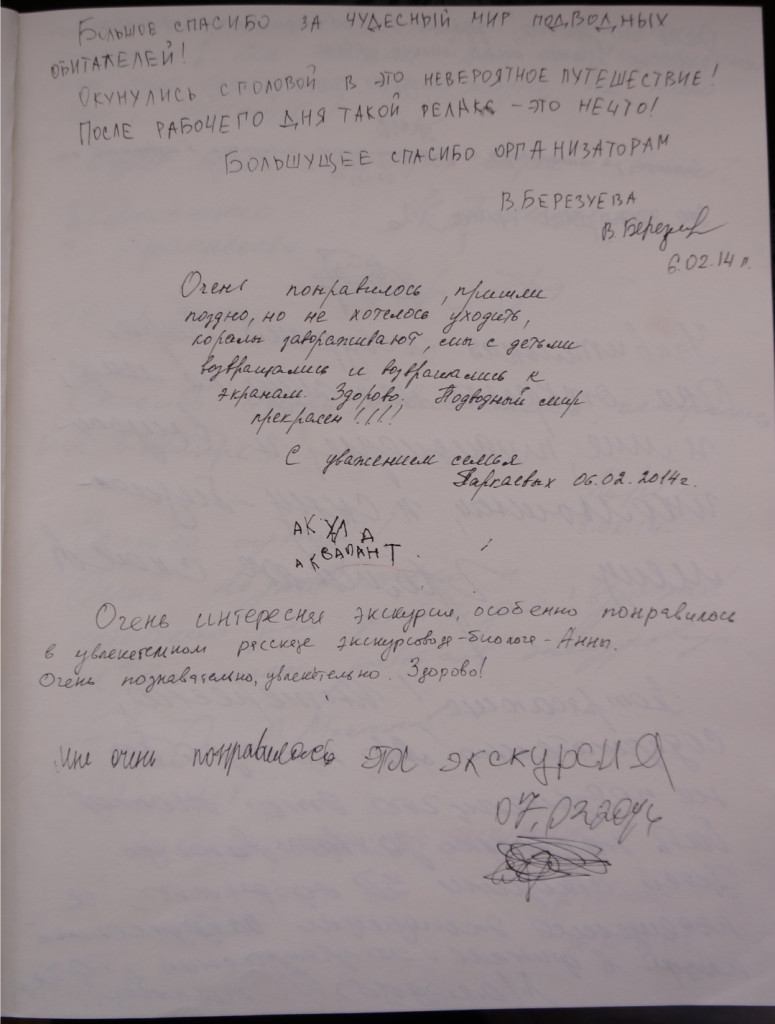 Большое спасибо за чудесный мир подводных
обитателей!
Окунулись с головой в это невероятное путешествие!
После рабочего дня такой релакс - это нечто!
Большущее спасибо организаторам
В. Березуева
В. Березуева
6.02.14 г.
Очень понравилось, пришли
поздно, но не хотелось уходить,
коралы завораживают, мы с детьми
возвращались и возвращались к
экранам. Здорово. Подводный мир
прекрасен!!!!
С уважением семья
Паркаевых 06.02.2014г.
АКУЛА
АКВАЛАНТ.
Очень интересная экскурсия, особенно понравилось
в увлекательном рассказе экскурсовода-биолога-Анны.
Очень познавательно, увлекательно. Здорово!
Мне очень понравилась эта экскурсия
07.02.2014